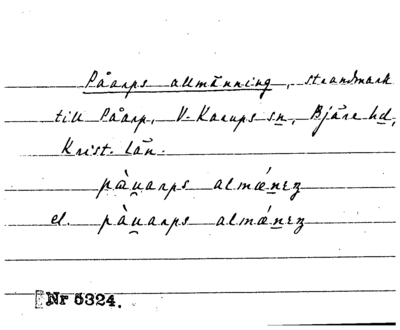 Påarps allmänning, strandmark
till Påarp, V. Karups sn, Bjäre hd,
Krist. län.
pàu̯arps almǽnez
el. pàu̯arps almǿnez
Nr 5324.